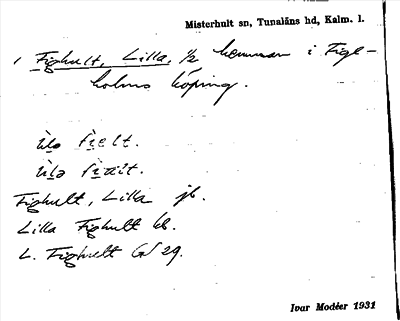 Misterhult sn, Tunaläns hd, Kalm. l.
1 Fighult, Lilla, 1/2 hemman i Fige-
holms köping.
Fighult, Lilla jb.
Lilla Fighult kb.
L. Fighult GS 29.
Ivar Modéer 1931